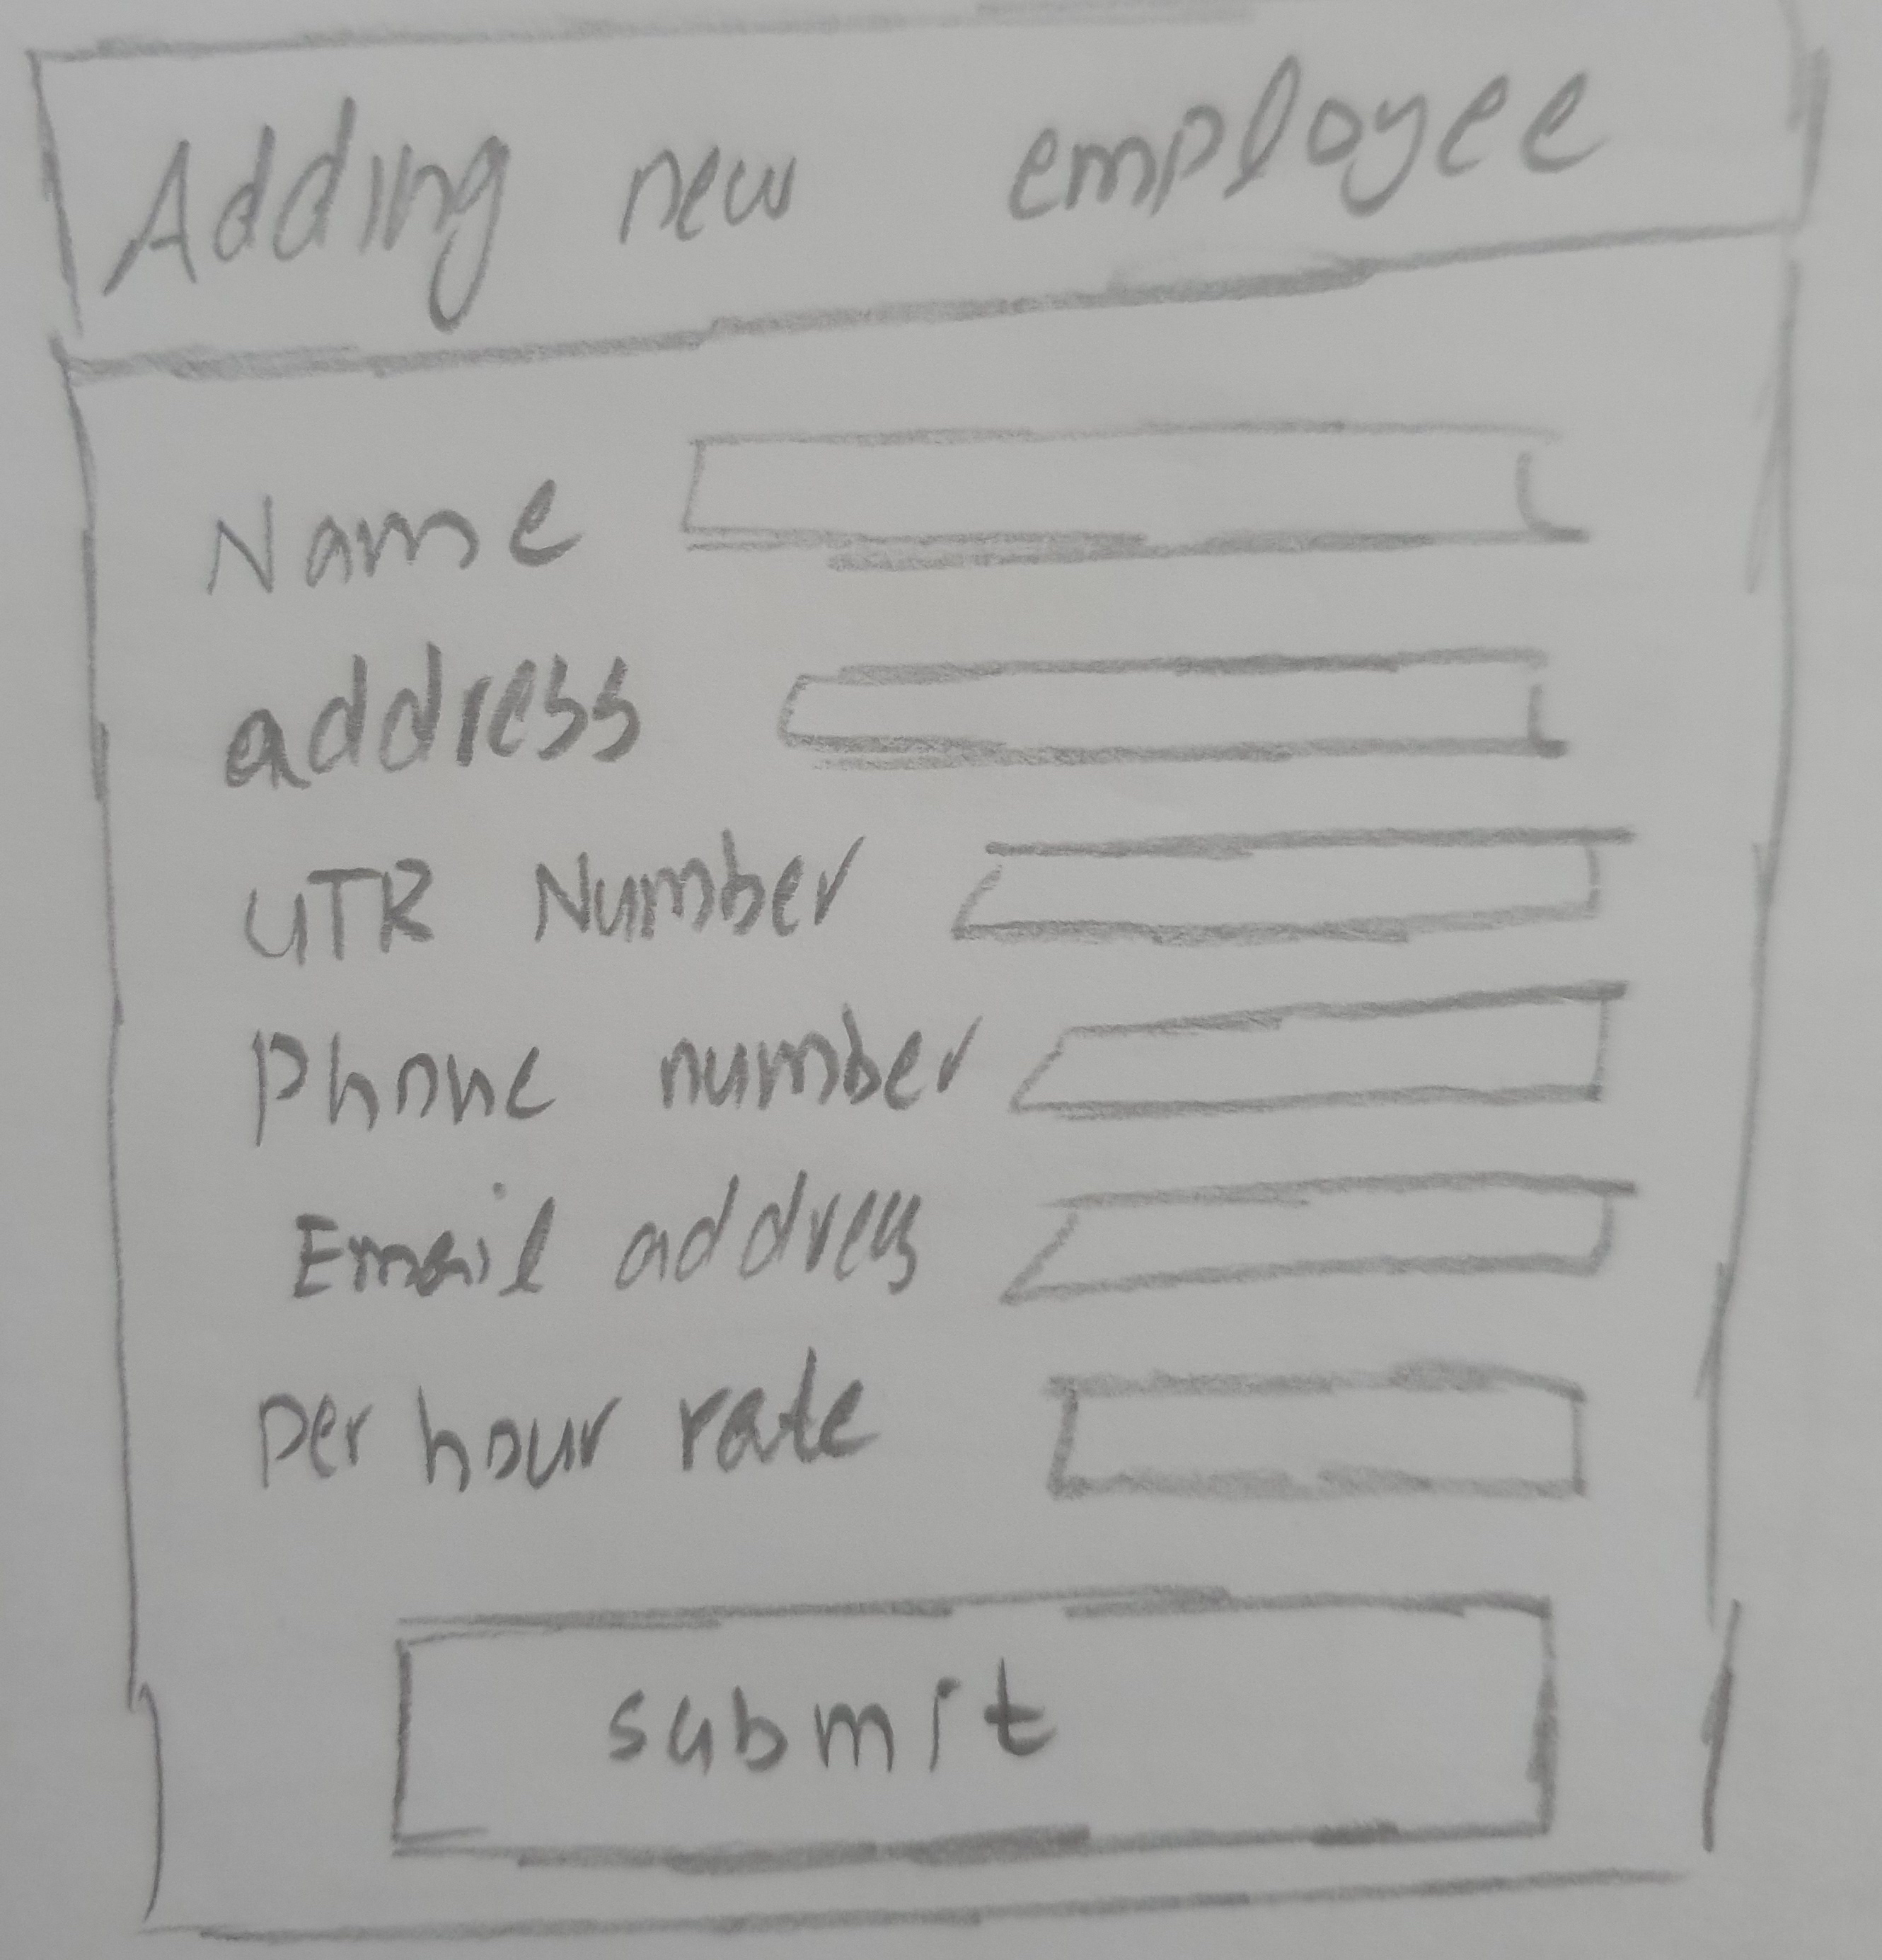 Adding new employee
Name
address
UTR Number
Phone number
Email address
per hour rate
submit